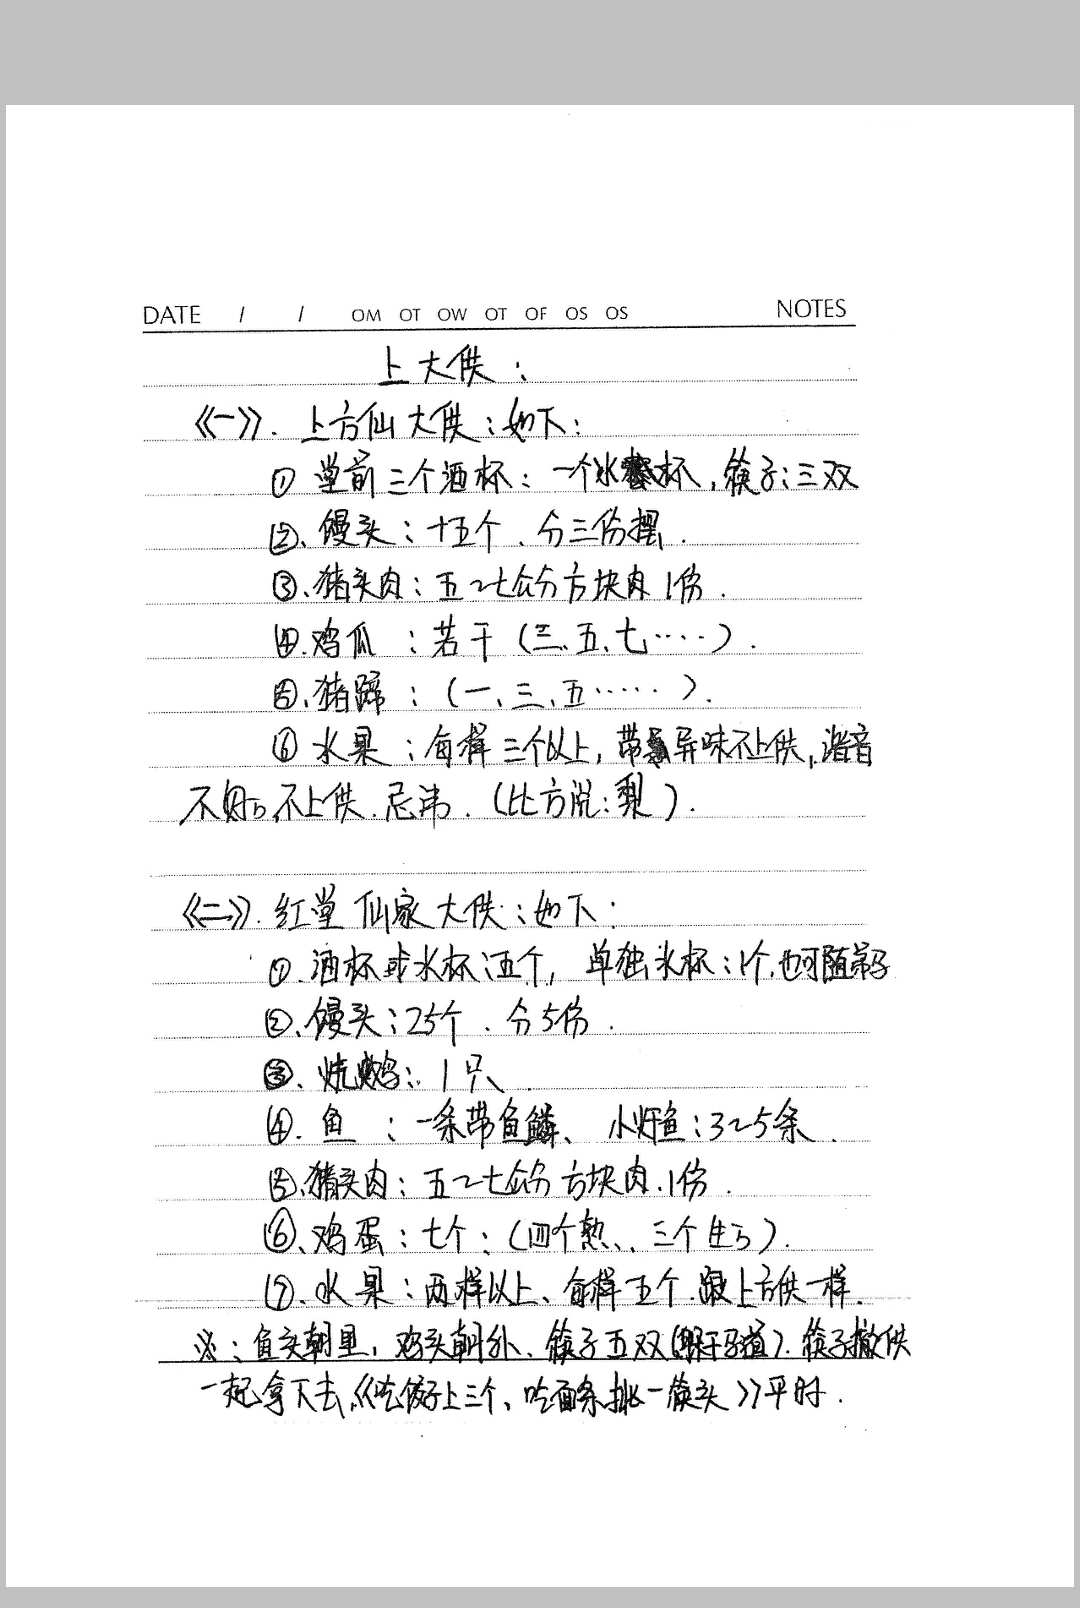 DATE / / OM OT OW OT OF OS OS NOTES
上大供：
《一》. 上方仙大供：如下：
① 堂前三个酒杯：一个水杯，筷子：三双
②、馒头：十五个、分三份摆.
③、猪头肉：五~七公分方块肉1份.
④.鸡爪：若干（三、五、七……）.
⑤、猪蹄：（一、三、五……）.
⑥ 水果：每样三个以上，带异味不上供，谐音
不好的不上供.忌讳.（比方说：梨）.
《二》. 红堂仙家大供：如下：
①、酒杯或水杯：五个，单独水杯：1个，也可随弟子
②、馒头：25个、分5份.
③、烧鸡：1只、
④、鱼：一条带鱼鳞、小籽鱼：3~5条.
⑤、猪头肉：五~七公分方块肉.1份.
⑥、鸡蛋：七个：（四个熟、三个生的）.
⑦、水果：两样以上、每样五个.跟上方供一样.
※：鱼头朝里，鸡头朝外、筷子五双. 筷子撤供
一起拿下去，《吃饺子上三个、吃面条挑一筷头》平时.